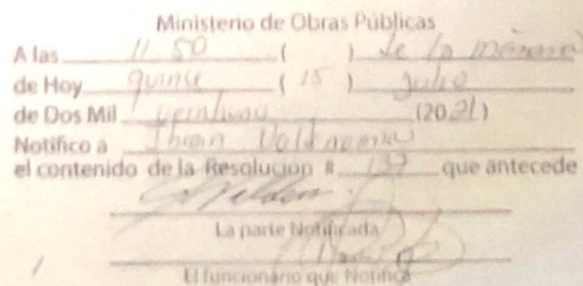 Ministerio de Obras Públicas
A las 11 50 ( ) de la mañana
de Hoy quince ( 15 ) Julio
de Dos Mil veintiuno (2021)
Notifico a
el contenido de la Resolución # que antecede
La parte Notificada
El funcionario que Notifica